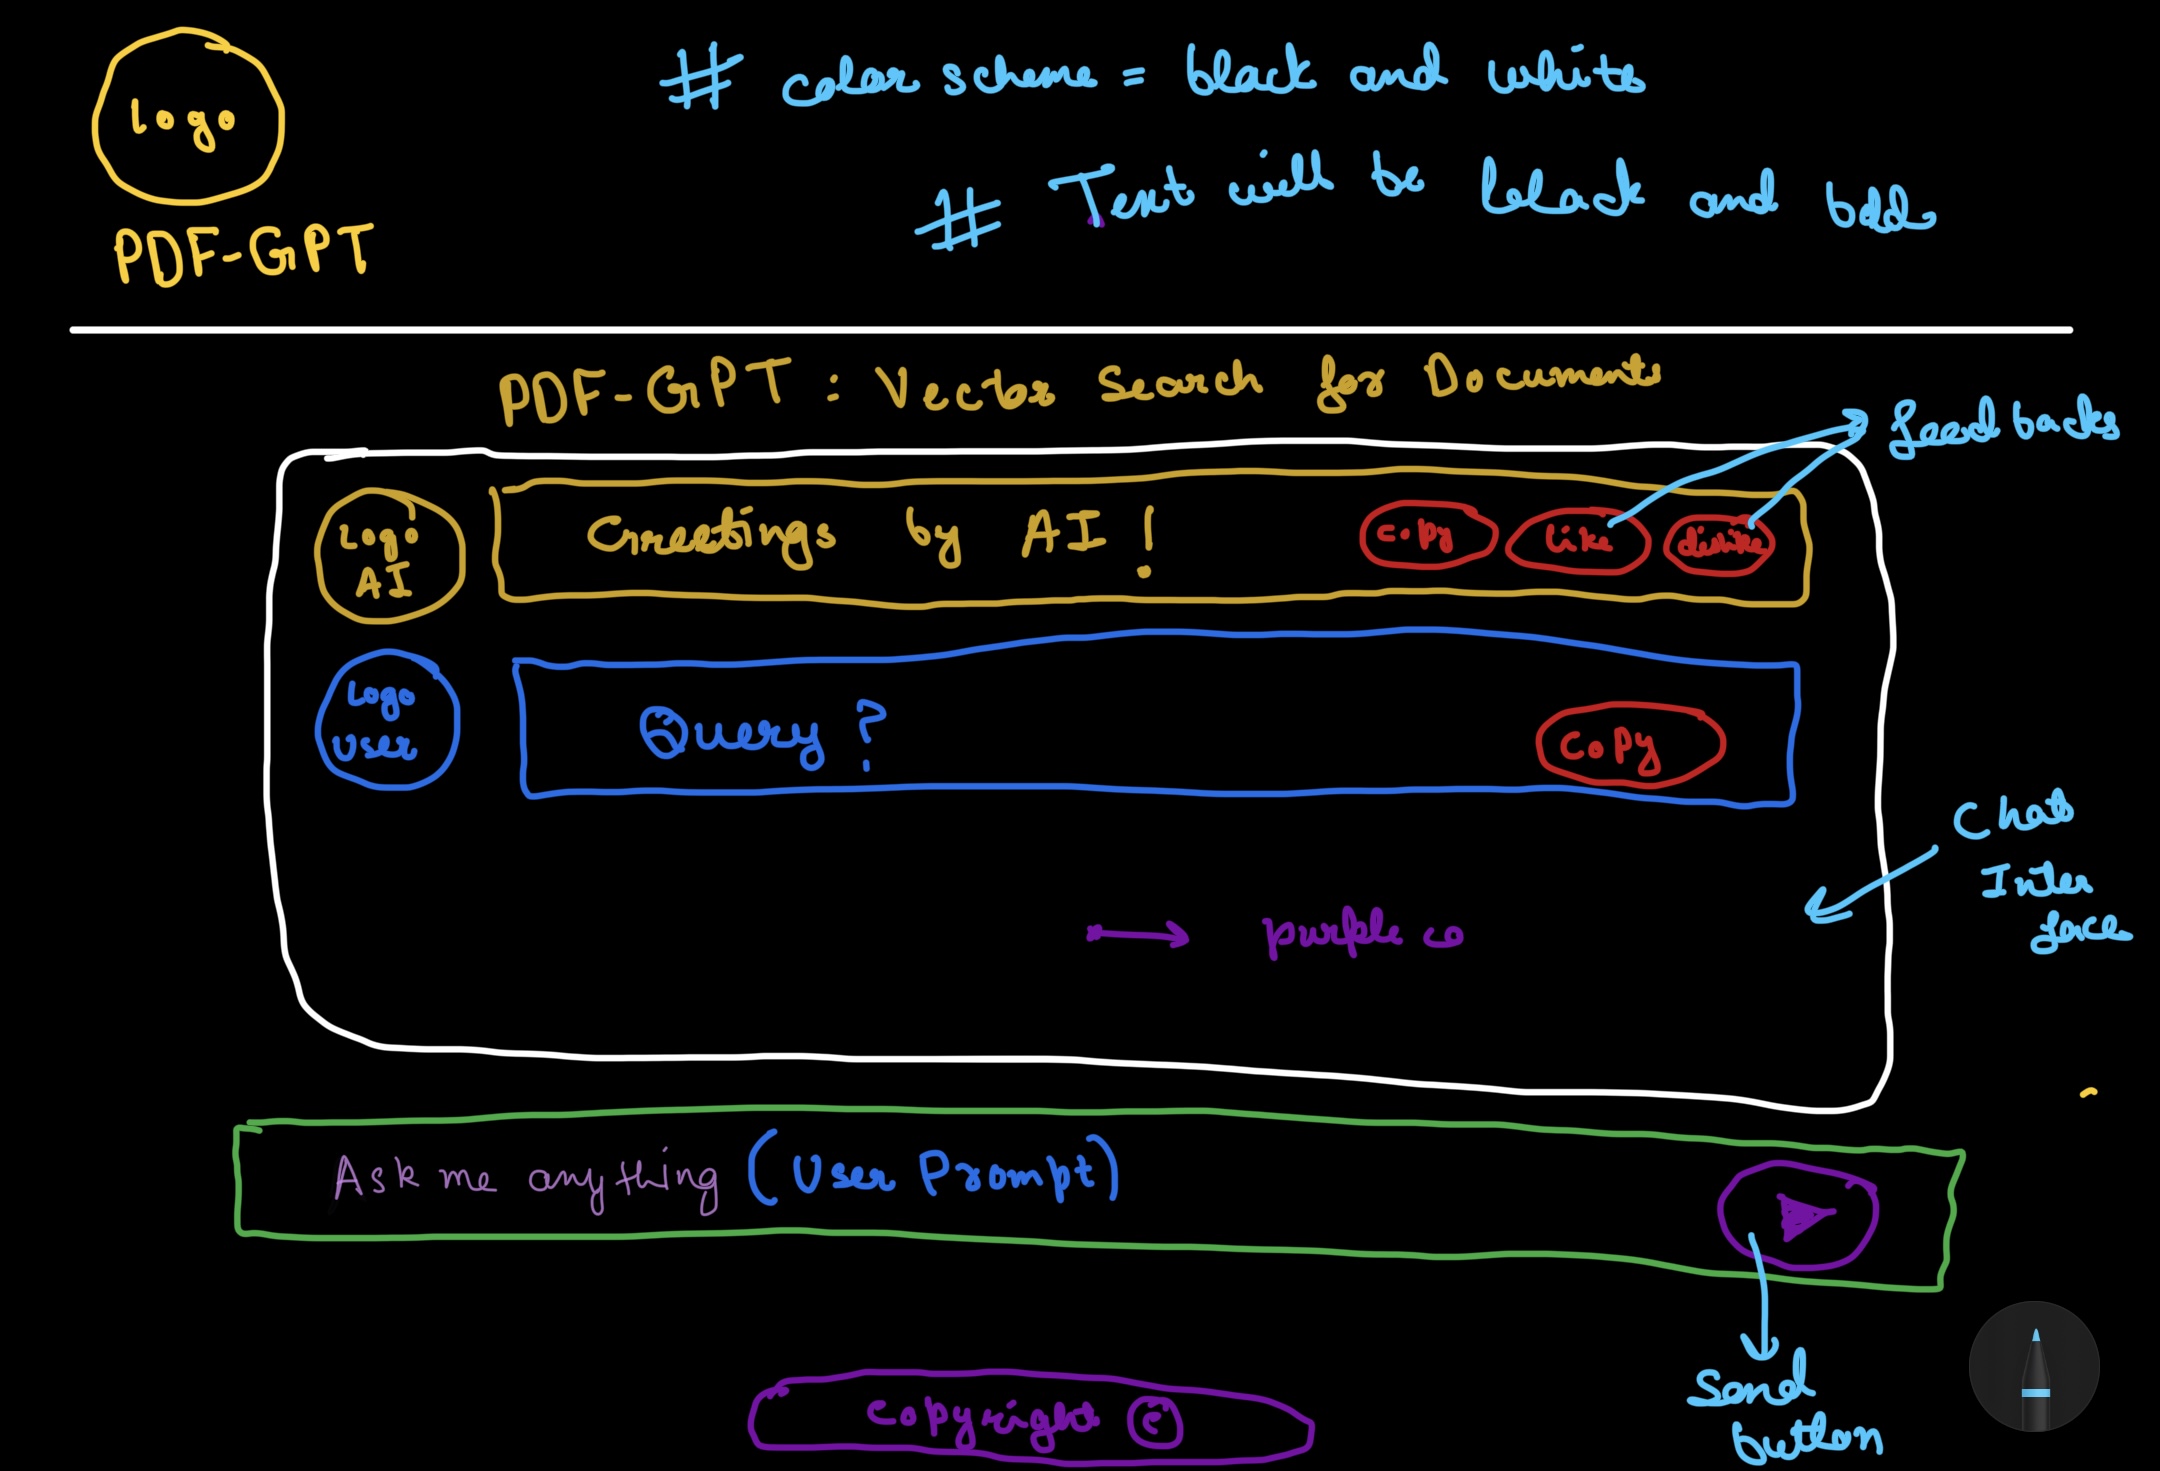 Logo
PDF-GPT
# color scheme = black and white
# Text will be black and bold
PDF-GPT : Vector Search for Documents
feedbacks
Logo
AI
Greetings by AI !
copy
like
dislike
Logo
User
Query ?
copy
Chat
Inter
face
purple co
Ask me anything (User Prompt)
Send
button
Copyright ©